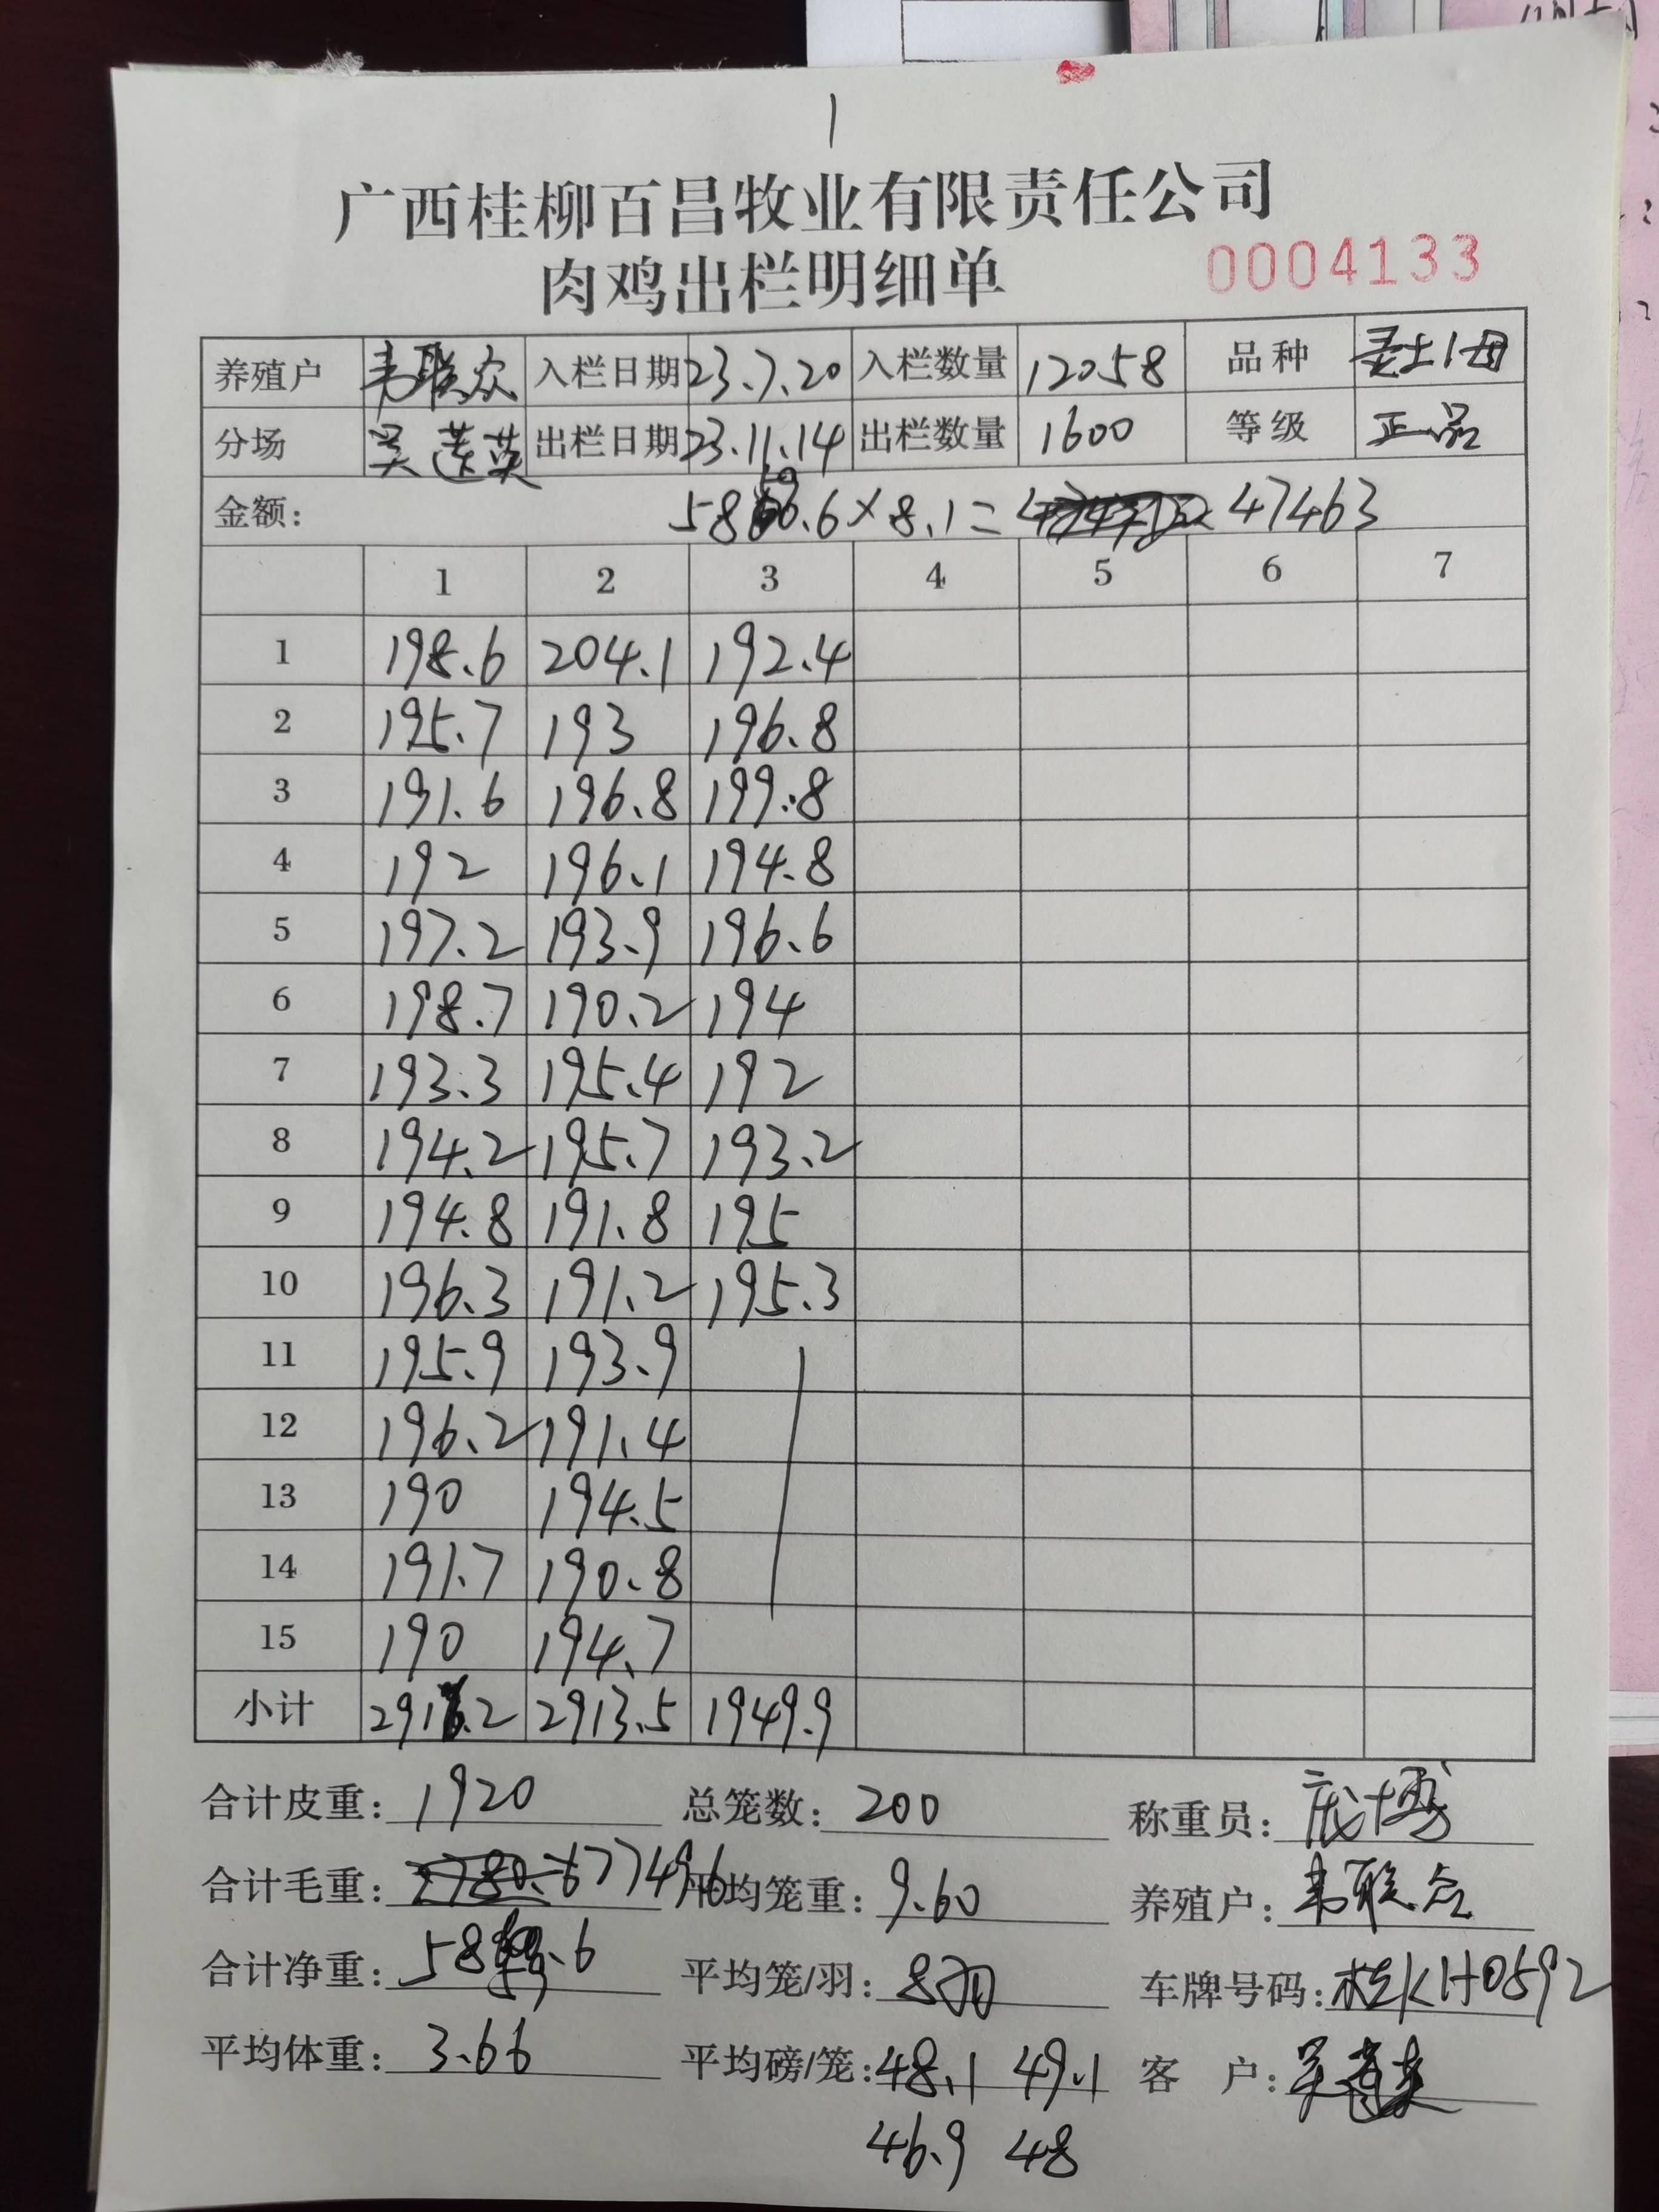 1
广西桂柳百昌牧业有限责任公司
肉鸡出栏明细单 0004133
养殖户 韦联众 入栏日期 23.7.20 入栏数量 12058 品种
分场 吴莲英 出栏日期 23.11.14 出栏数量 1600 等级 正品
金额: 5859.6×8.1= 47463
1 2 3 4 5 6 7
1 198.6 204.1 192.4
2 195.7 193 196.8
3 191.6 196.8 199.8
4 192 196.1 194.8
5 197.2 193.9 196.6
6 198.7 190.2 194
7 193.3 195.4 192
8 194.2 195.7 193.2
9 194.8 191.8 195
10 196.3 191.2 195.3
11 195.9 193.9
12 196.2 191.4
13 190 194.5
14 191.7 190.8
15 190 194.7
小计 2916.2 2913.5 1949.9
合计皮重: 1920 总笼数: 200 称重员:
合计毛重: 7749.6 平均笼重: 9.60 养殖户: 韦联众
合计净重: 平均笼/羽: 8羽 车牌号码: 桂KH0592
平均体重: 3.66 平均磅/笼: 48.1 49.1 客 户:
46.9 48